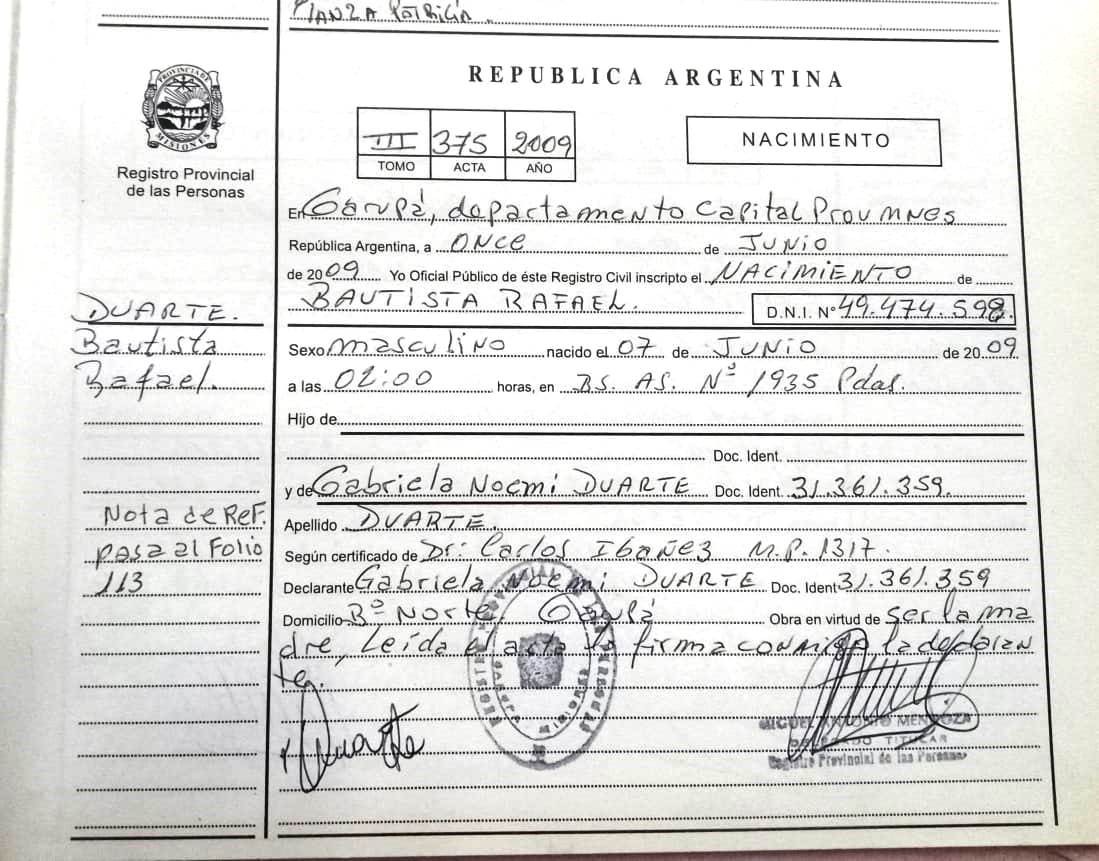 PLANZA PATRICIA
PROVINCIA DE MISIONES
Registro Provincial
de las Personas
REPUBLICA ARGENTINA
III 375 2009
TOMO ACTA AÑO
NACIMIENTO
En Garupá, departamento Capital Prov MNES
República Argentina, a ONCE de JUNIO
de 2009 Yo Oficial Público de éste Registro Civil inscripto el NACIMIENTO de
BAUTISTA RAFAEL. D.N.I. Nº 49.474.598.
DUARTE.
Bautista
Rafael.
Sexo masculino nacido el 07 de JUNIO de 2009
a las 02:00 horas, en BS. AS. Nº 1935 Pdas.
Hijo de
Doc. Ident.
y de Gabriela Noemi DUARTE Doc. Ident. 31.361.359.
Nota de Ref.
pasa al Folio
113
Apellido DUARTE.
Según certificado de Dr. Carlos Ibañez M.P. 1317.
Declarante Gabriela Noemi DUARTE Doc. Ident 31.361.359
Domicilio Bº Norte, Garupá Obra en virtud de ser la ma
dre, Leída el acta la firma conmigo la declaran
te.
Duarte
REGISTRO PROVINCIAL DE LAS PERSONAS
Misiones
MIGUEL ANTONIO MENDOZA
DELEGADO TITULAR
Registro Provincial de las Personas